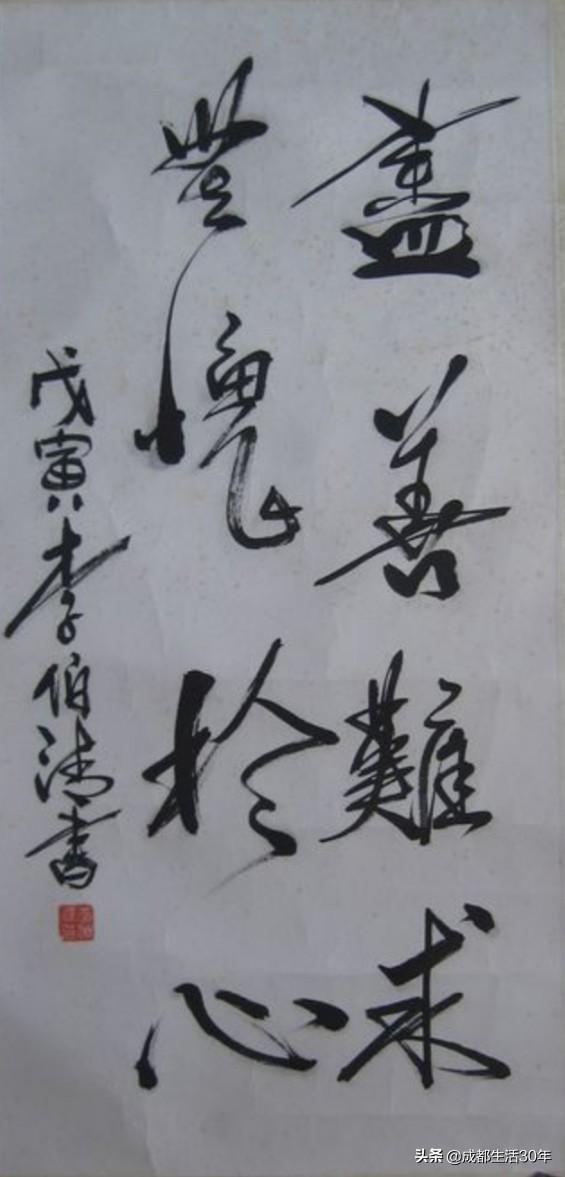 盡善難求
無愧於心
戊寅李伯清書
头条 @成都生活30年